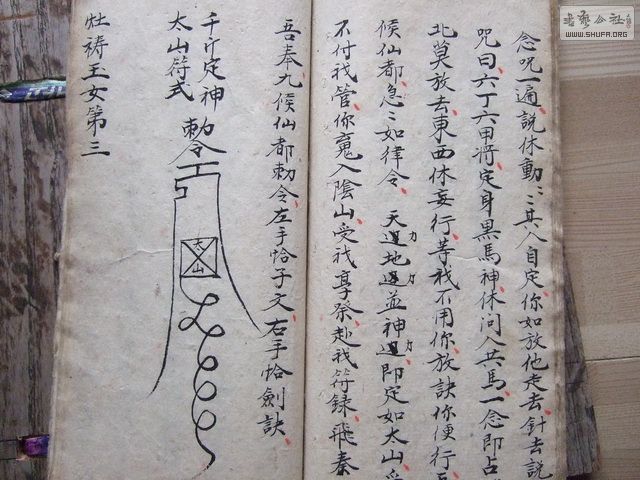 念咒一遍説休動〻其人自定你如放他走去針去説
咒曰六丁六甲將定身黑馬神休问人共馬一念即占
北莫放去東西休妄行等我不用你放訣你便行
候仙都急〻如律令 天退地退並神退即定如太山
力 力 力
不付我管你䰟入陰山受我享祭赴我符録飛奏
吾奉九候仙都勅令左手恰子文右手恰劍訣
千斤定神
太山符式
勅令
太山
牡祷王女第三
書藝公社
WWW.SHUFA.ORG